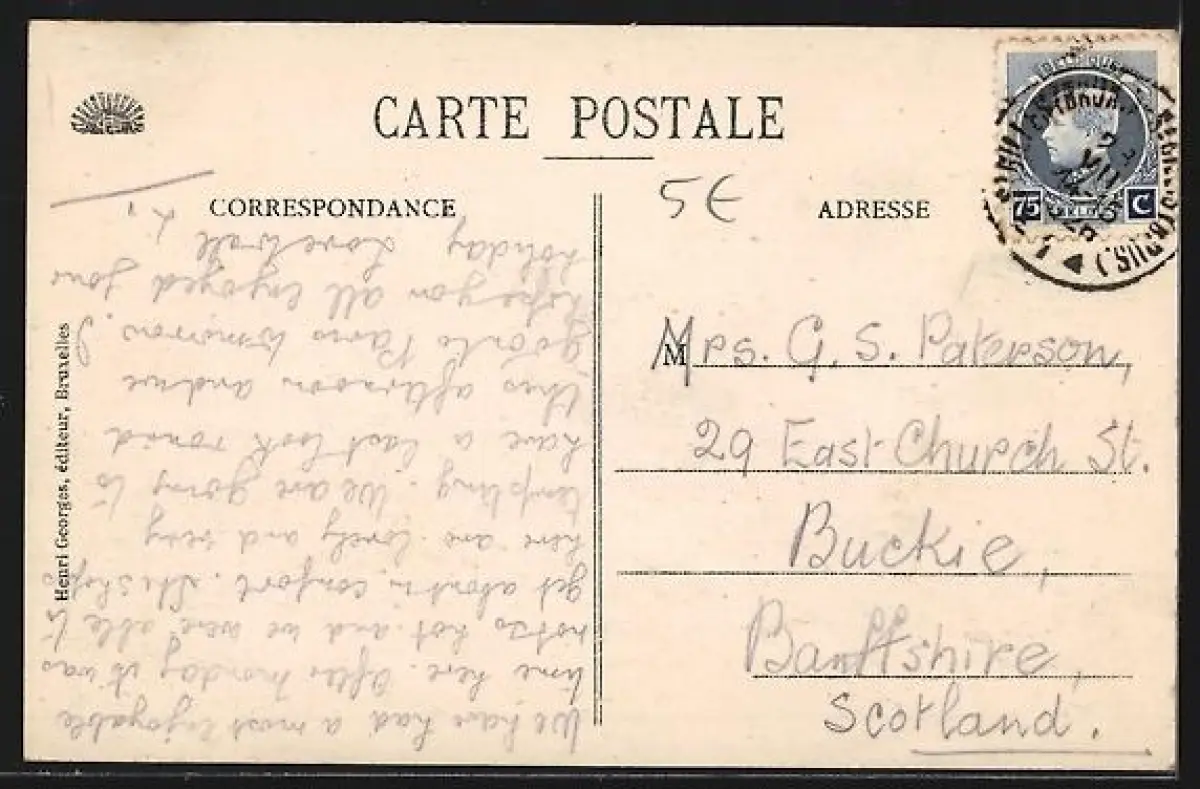 CARTE POSTALE
CORRESPONDANCE
ADRESSE
5€
75 C
Henri Georges, éditeur, Bruxelles
Mrs. G. S. Paterson,
29 East Church St.
Buckie,
Banffshire,
Scotland.
We have had a most enjoyable
time here. After Monday it was
not so hot and we were able to
get about in comfort. The shops
here are lovely and very
tempting. We are going to
have a last look round
this afternoon and we
go on to Paris tomorrow. I
hope you all enjoyed your
holiday Love to all